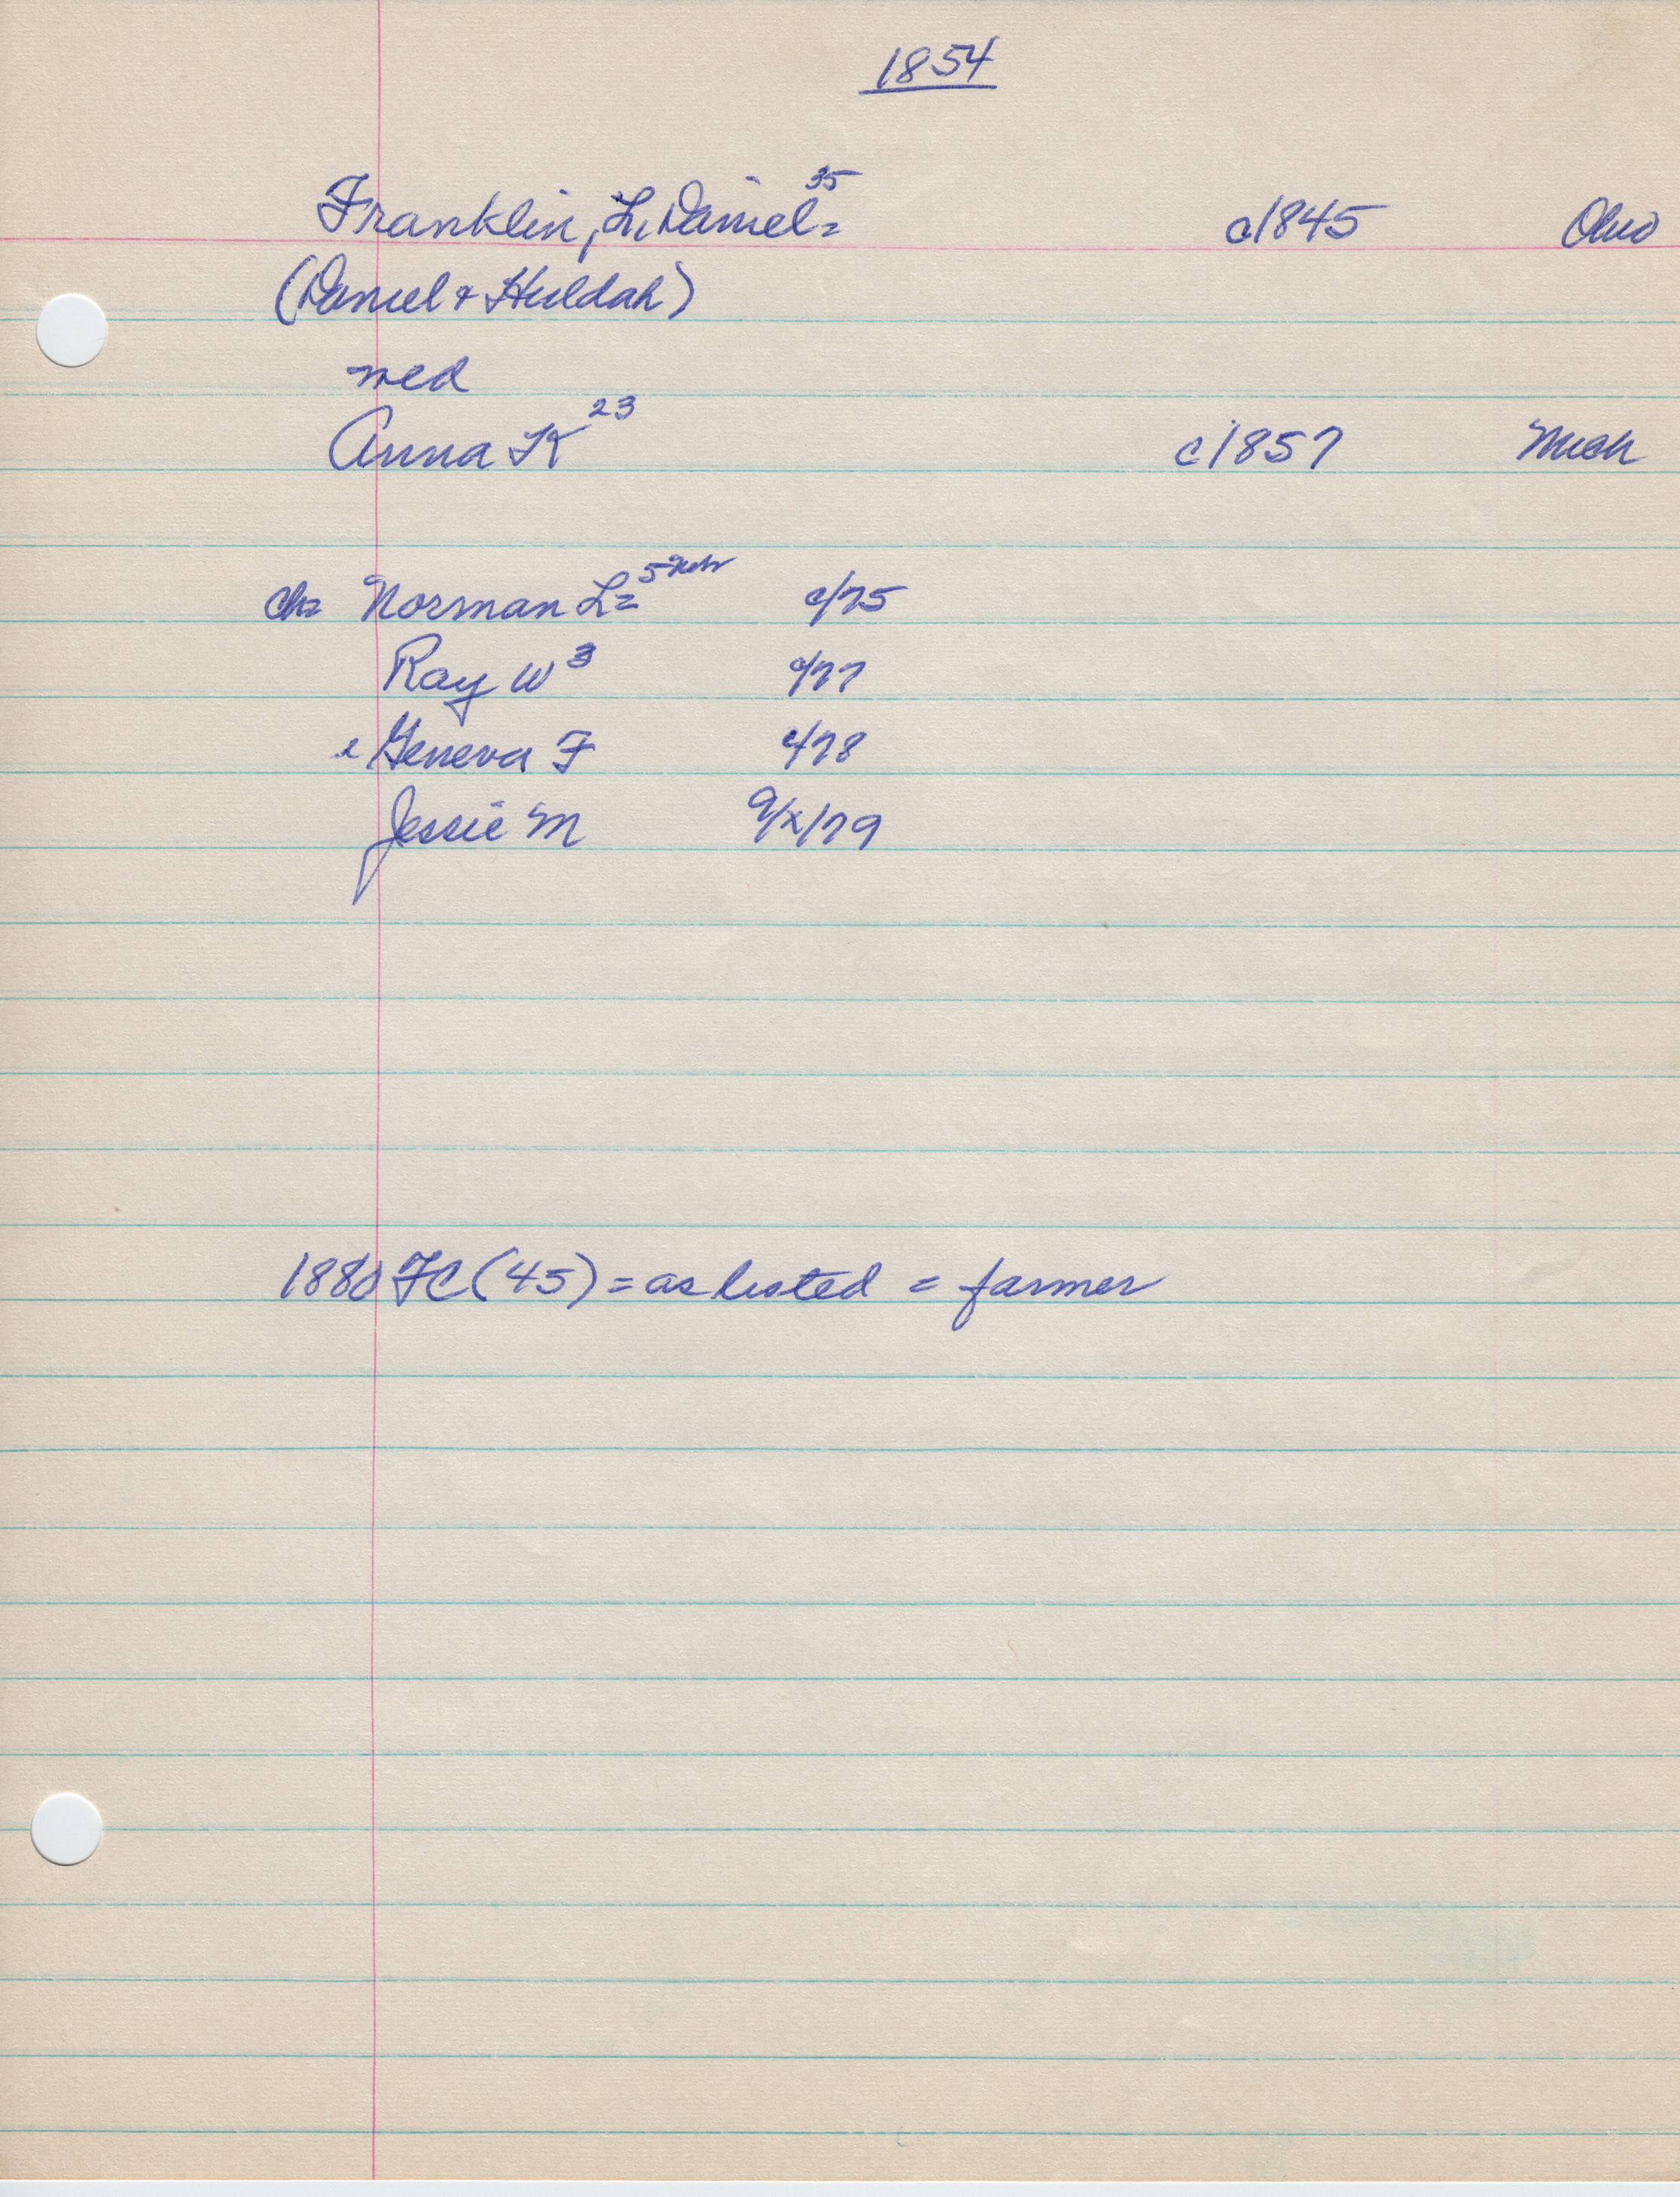 1854
Franklin, L. Daniel 35 = c1845 Ohio
(Daniel & Huldah)
med
Anna K 23 c1857 Mich
ch= Norman L= 5 Nebr c/75
Ray W 3 c/77
Geneva F c/78
Jessie M 9/x/79
1880 FC (45) = as listed = farmer